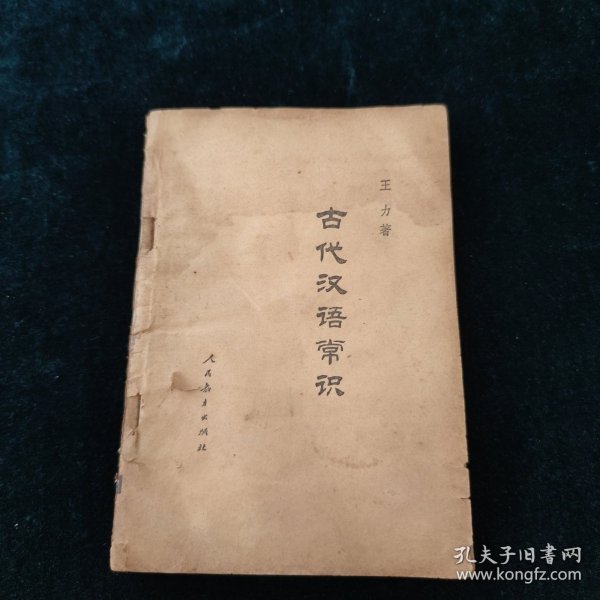 王力著
古代汉语常识
人民教育出版社
孔夫子旧书网
www.kongfz.com